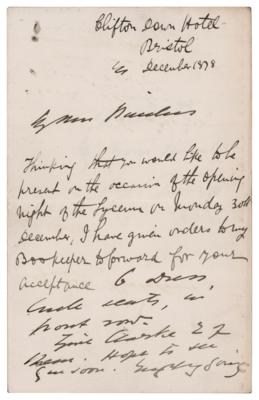 Clifton Down Hotel
Bristol
December 1878
My Dear
Thinking that you would like to be
present on the occasion of the opening
night of the Lyceum on Monday 30th
December, I have given orders to my
Bookeeper to forward for your
acceptance 6 Dress
Circle seats, in
front row.
Hope to see
you soon.